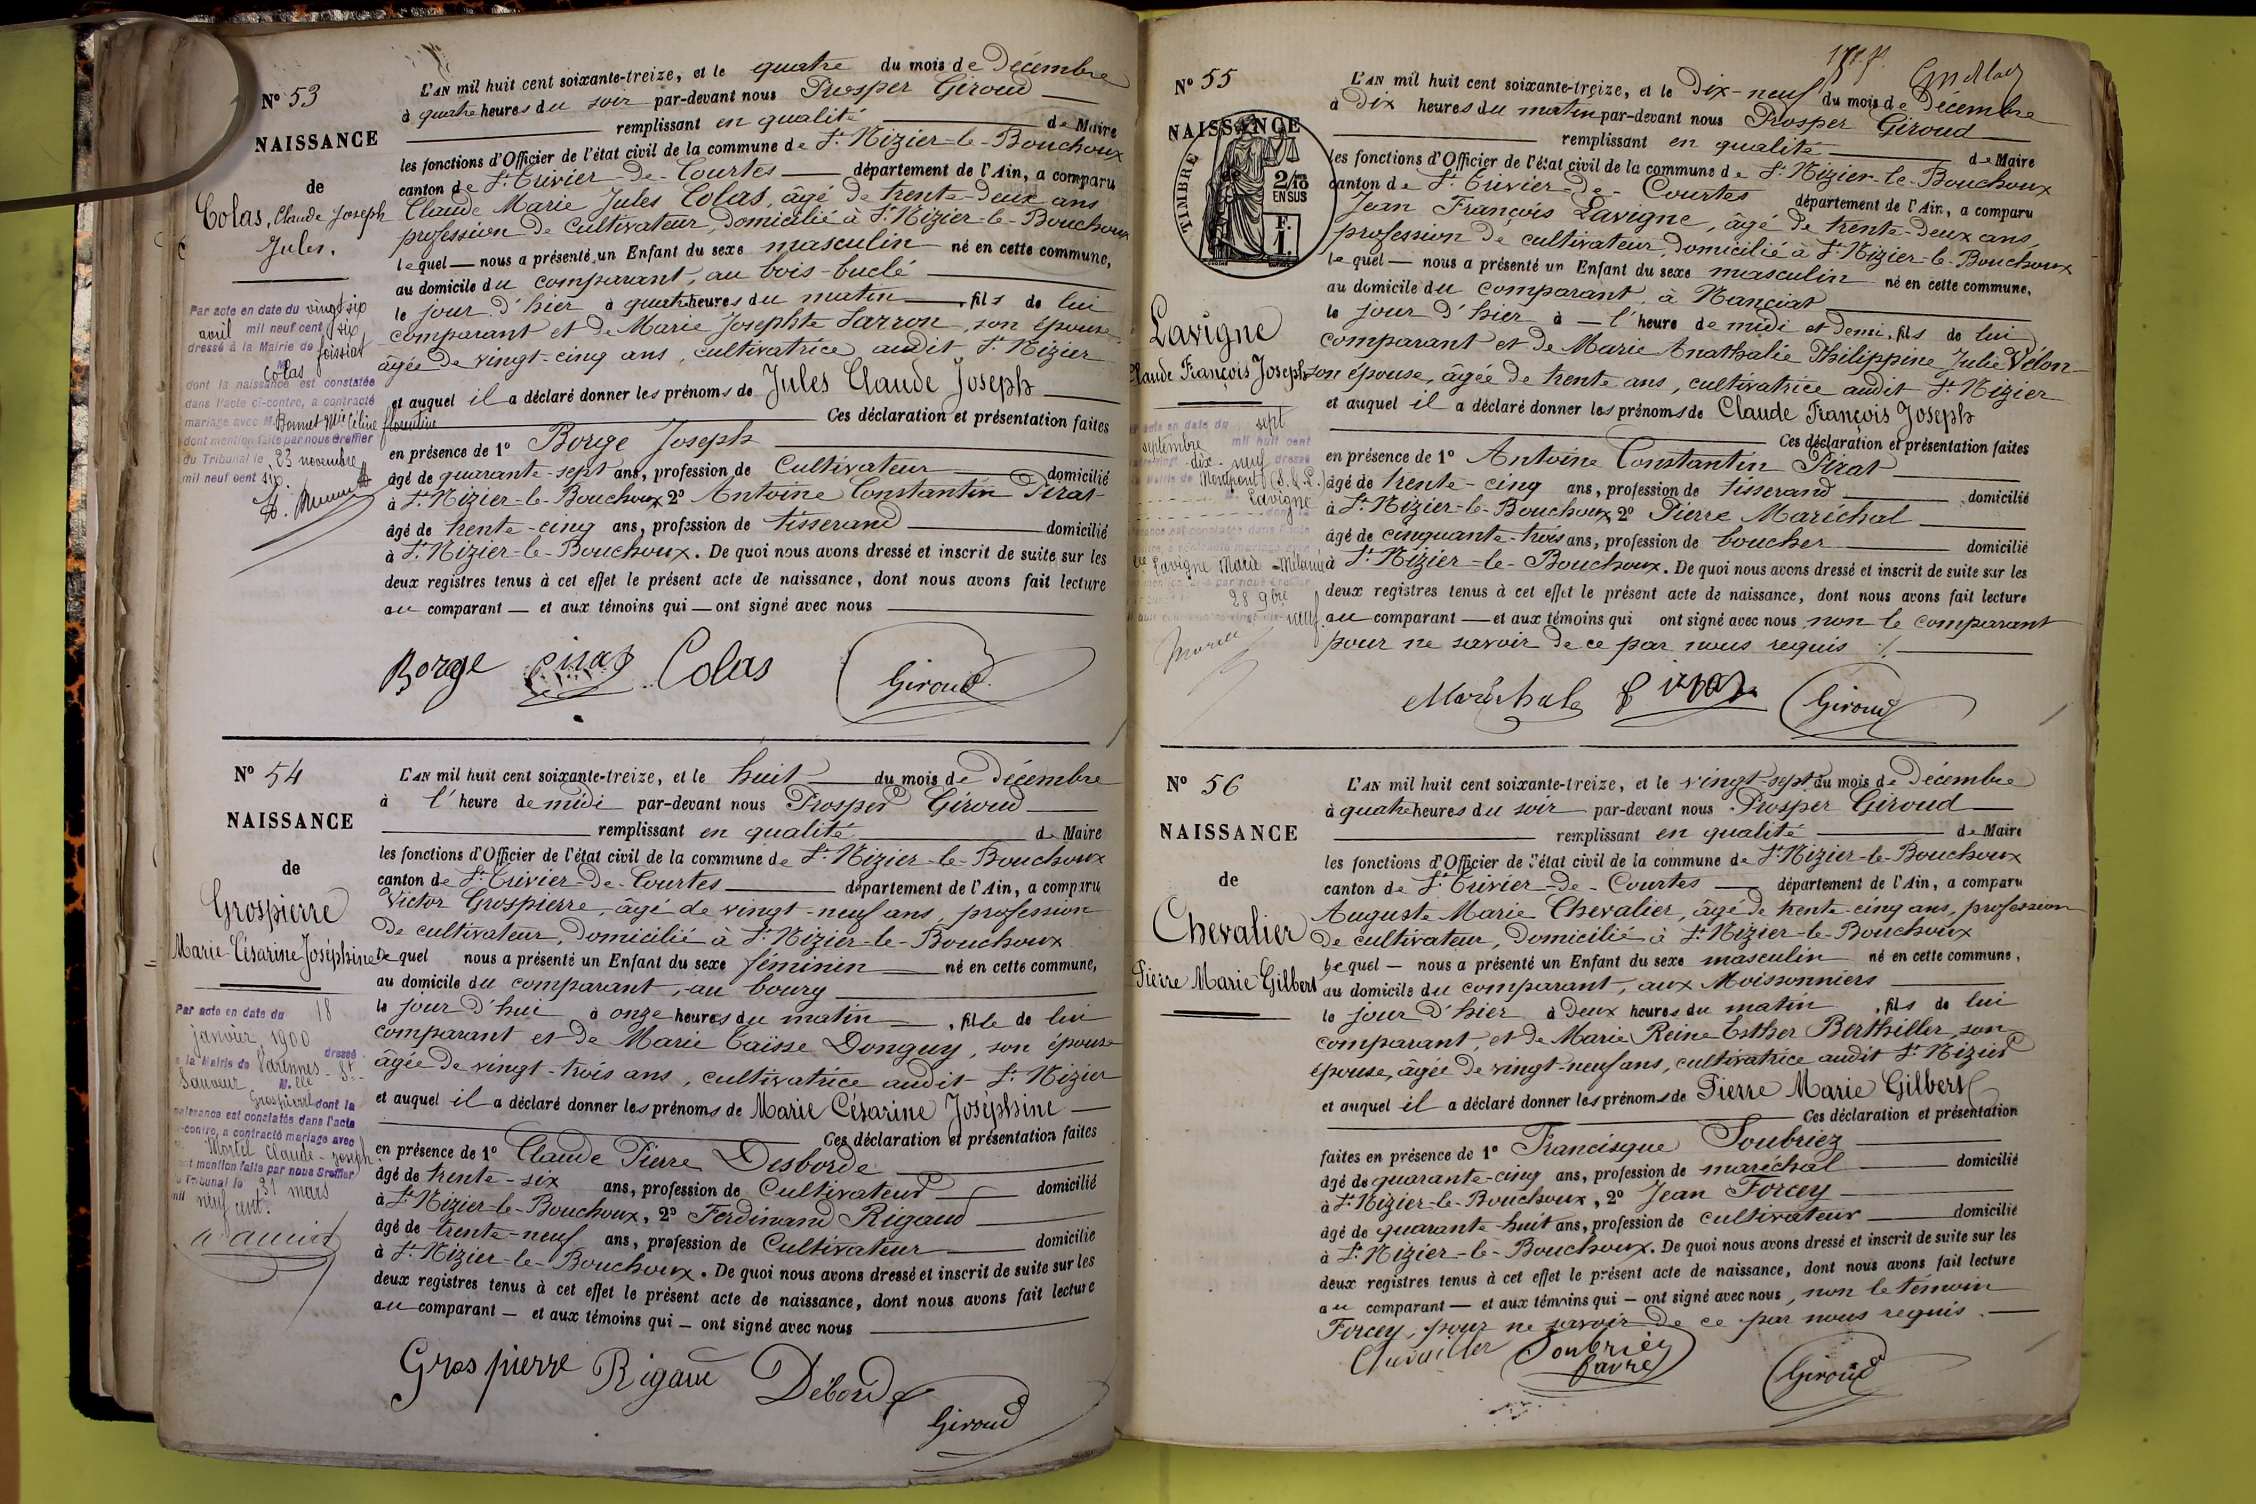 N° 53
NAISSANCE
de
Colas, Claude Joseph
Jules.
Par acte en date du vingt six
avril mil neuf cent six
dressé à la Mairie de foissiat
M. Colas
dont la naissance est constatée
dans l'acte ci-contre, a contracté
mariage avec Mlle Bonnet Mie Céline
florentine
dont mention faite par nous Greffier
du Tribunal le 23 novembre
mil neuf cent six.
L'AN mil huit cent soixante-treize, et le quatre du mois de Décembre
à quatre heures du soir par-devant nous Prosper Giroud
remplissant en qualité de Maire
les fonctions d'Officier de l'état civil de la commune de St Nizier-le-Bouchoux
canton de St Trivier-de-Courtes département de l'Ain, a comparu
Claude Marie Jules Colas, âgé de trente-deux ans
profession de cultivateur, domicilié à St Nizier-le-Bouchoux
lequel — nous a présenté un Enfant du sexe masculin né en cette commune,
au domicile du comparant, au bois-buclé
le jour d'hier à quatre heures du matin, fils de lui
comparant et de Marie Josephte Sarron, son épouse
âgée de vingt-cinq ans, cultivatrice audit St Nizier
et auquel il a déclaré donner les prénoms de Jules Claude Joseph
Ces déclaration et présentation faites
en présence de 1° Borge Joseph
âgé de quarante-sept ans, profession de Cultivateur domicilié
à St Nizier-le-Bouchoux 2° Antoine Constantin Pirat
âgé de trente-cinq ans, profession de tisserand domicilié
à St Nizier-le-Bouchoux. De quoi nous avons dressé et inscrit de suite sur les
deux registres tenus à cet effet le présent acte de naissance, dont nous avons fait lecture
au comparant — et aux témoins qui — ont signé avec nous
Borge Pirat Colas Giroud
N° 54
NAISSANCE
de
Grospierre
Marie Césarine Joséphine
Par acte en date du 18
janvier 1900
dressé
à la Mairie de Varennes-St-
Sauveur Mlle
Grospierre dont la
naissance est constatée dans l'acte
ci-contre, a contracté mariage avec
Mortel Claude-Joseph
dont mention faite par nous Greffier
du Tribunal le 31 mars
mil neuf cent.
L'AN mil huit cent soixante-treize, et le huit du mois de Décembre
à l'heure de midi par-devant nous Prosper Giroud
remplissant en qualité de Maire
les fonctions d'Officier de l'état civil de la commune de St Nizier-le-Bouchoux
canton de St Trivier-de-Courtes département de l'Ain, a comparu
Victor Grospierre, âgé de vingt-neuf ans, profession
de cultivateur, domicilié à St Nizier-le-Bouchoux
lequel nous a présenté un Enfant du sexe féminin né en cette commune,
au domicile du comparant, au bourg
le jour d'hui à onze heures du matin, fille de lui
comparant et de Marie Taïsse Donguy, son épouse
âgée de vingt-trois ans, cultivatrice audit St Nizier
et auquel il a déclaré donner les prénoms de Marie Césarine Joséphine
Ces déclaration et présentation faites
en présence de 1° Claude Pierre Desborde
âgé de trente-six ans, profession de Cultivateur domicilié
à St Nizier-le-Bouchoux, 2° Ferdinand Rigaud
âgé de trente-neuf ans, profession de Cultivateur domicilié
à St Nizier-le-Bouchoux. De quoi nous avons dressé et inscrit de suite sur les
deux registres tenus à cet effet le présent acte de naissance, dont nous avons fait lecture
au comparant — et aux témoins qui — ont signé avec nous
Grospierre Rigaud Déborde
Giroud
N° 55
NAISSANCE
TIMBRE
2/10
EN SUS
F.
1.
Lavigne
Claude François Joseph
par acte en date du sept
septembre mil huit cent
quatre-vingt-dix-neuf dressé
à la Mairie de Montpont (S.&L.)
M. Lavigne
dont la
naissance est constatée dans l'acte
Lavigne Marie Mélanie
mention faite par nous Greffier
28 9bre
neuf.
L'AN mil huit cent soixante-treize, et le Dix-neuf du mois de Décembre
à Dix heures du matin par-devant nous Prosper Giroud
remplissant en qualité de Maire
les fonctions d'Officier de l'état civil de la commune de St Nizier-le-Bouchoux
canton de St Trivier-de-Courtes département de l'Ain, a comparu
Jean François Lavigne, âgé de trente-deux ans
profession de cultivateur, domicilié à St Nizier-le-Bouchoux
lequel — nous a présenté un Enfant du sexe masculin né en cette commune,
au domicile du comparant, à Nanciat
le jour d'hier à — l'heure de midi et demi, fils de lui
comparant et de Marie Anathalie Philippine Julie Vélon
son épouse, âgée de trente ans, cultivatrice audit St Nizier
et auquel il a déclaré donner les prénoms de Claude François Joseph
Ces déclaration et présentation faites
en présence de 1° Antoine Constantin Pirat
âgé de trente-cinq ans, profession de tisserand domicilié
à St Nizier-le-Bouchoux 2° Pierre Maréchal
âgé de cinquante-trois ans, profession de boucher domicilié
à St Nizier-le-Bouchoux. De quoi nous avons dressé et inscrit de suite sur les
deux registres tenus à cet effet le présent acte de naissance, dont nous avons fait lecture
au comparant — et aux témoins qui ont signé avec nous, non le comparant
pour ne savoir de ce par nous requis ./.
Maréchale Pirat Giroud
N° 56
NAISSANCE
de
Chevalier
Pierre Marie Gilbert
L'AN mil huit cent soixante-treize, et le vingt-sept du mois de Décembre
à quatre heures du soir par-devant nous Prosper Giroud
remplissant en qualité de Maire
les fonctions d'Officier de l'état civil de la commune de St Nizier-le-Bouchoux
canton de St Trivier-de-Courtes département de l'Ain, a comparu
Auguste Marie Chevalier, âgé de trente-cinq ans, profession
de cultivateur, domicilié à St Nizier-le-Bouchoux
lequel — nous a présenté un Enfant du sexe masculin né en cette commune,
au domicile du comparant, aux Moissonniers
le jour d'hier à deux heures du matin, fils de lui
comparant, et de Marie Reine Esther Berthiller, son
épouse, âgée de vingt-neuf ans, cultivatrice audit St Nizier
et auquel il a déclaré donner les prénoms de Pierre Marie Gilbert
Ces déclaration et présentation
faites en présence de 1° Francisque Soubriez
âgé de quarante-cinq ans, profession de maréchal domicilié
à St Nizier-le-Bouchoux, 2° Jean Forcey
âgé de quarante-huit ans, profession de cultivateur domicilié
à St Nizier-le-Bouchoux. De quoi nous avons dressé et inscrit de suite sur les
deux registres tenus à cet effet le présent acte de naissance, dont nous avons fait lecture
au comparant — et aux témoins qui — ont signé avec nous, non le témoin
Forcey, pour ne savoir de ce par nous requis.
Chevallier Soubriez
favre Giroud